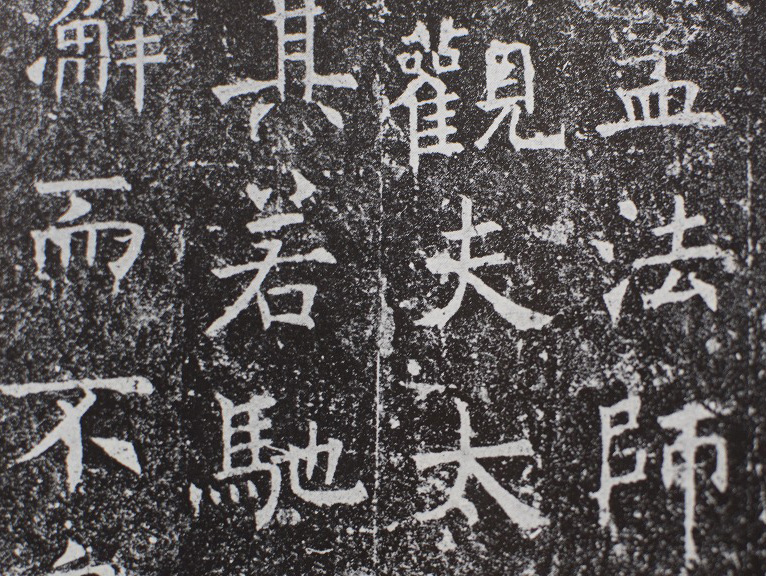 孟法師
觀夫太
其若馳
解而不